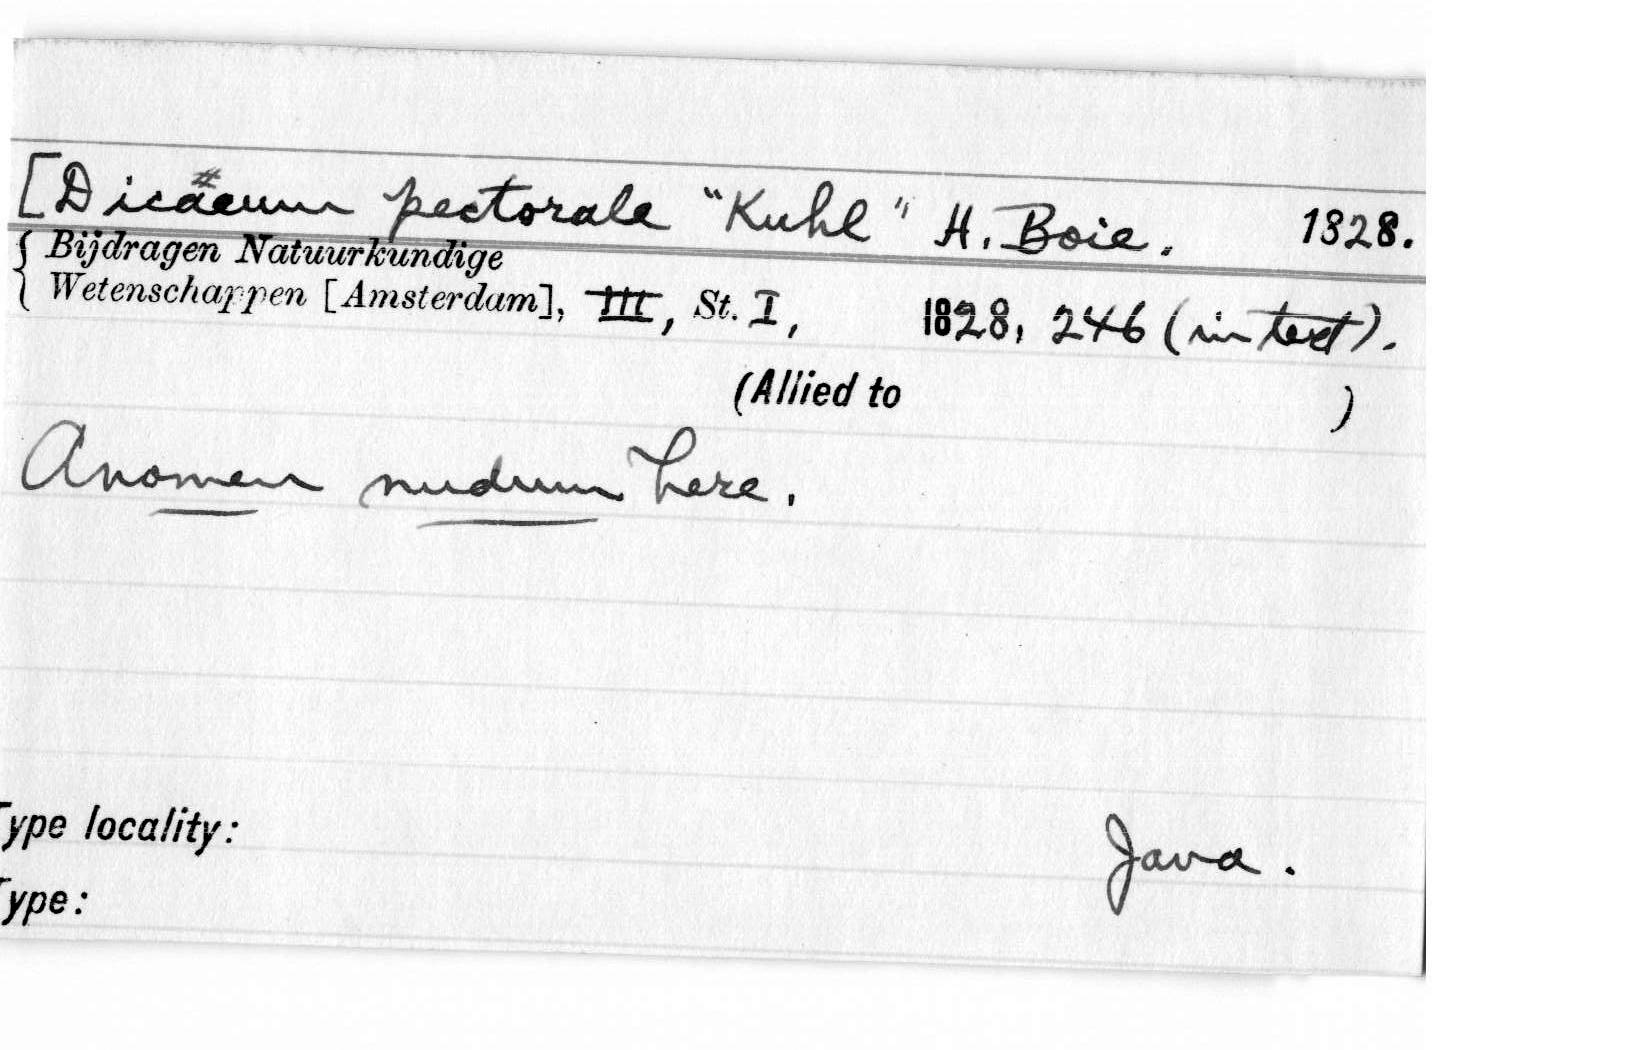 [Dicaeum pectorale "Kuhl" H. Boie. 1828.
Bijdragen Natuurkundige
Wetenschappen [Amsterdam], III, St. I, 1828, 246 (in text).
(Allied to )
A nomen nudum here.
Type locality: Java.
Type: